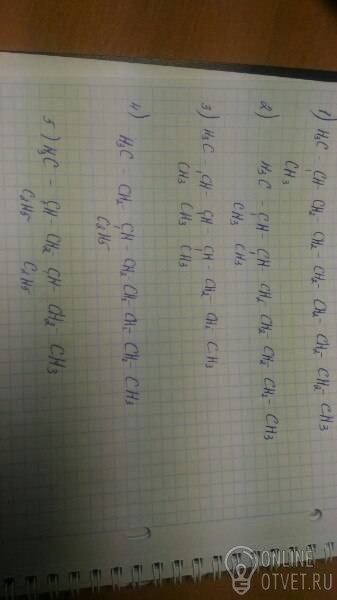 1) H3C - CH - CH2 - CH2 - CH2 - CH2 - CH2 - CH2 - CH3
CH3
2) H3C - CH - CH - CH2 - CH2 - CH2 - CH2 - CH3
CH3 CH3
3) H3C - CH - CH - CH - CH2 - CH2 - CH3
CH3 CH3 CH3
4) H3C - CH2 - CH - CH2 - CH2 - CH2 - CH2 - CH3
C2H5
5) H3C - CH - CH2 - CH - CH2 - CH3
C2H5 C2H5
ONLINE
OTVET.RU